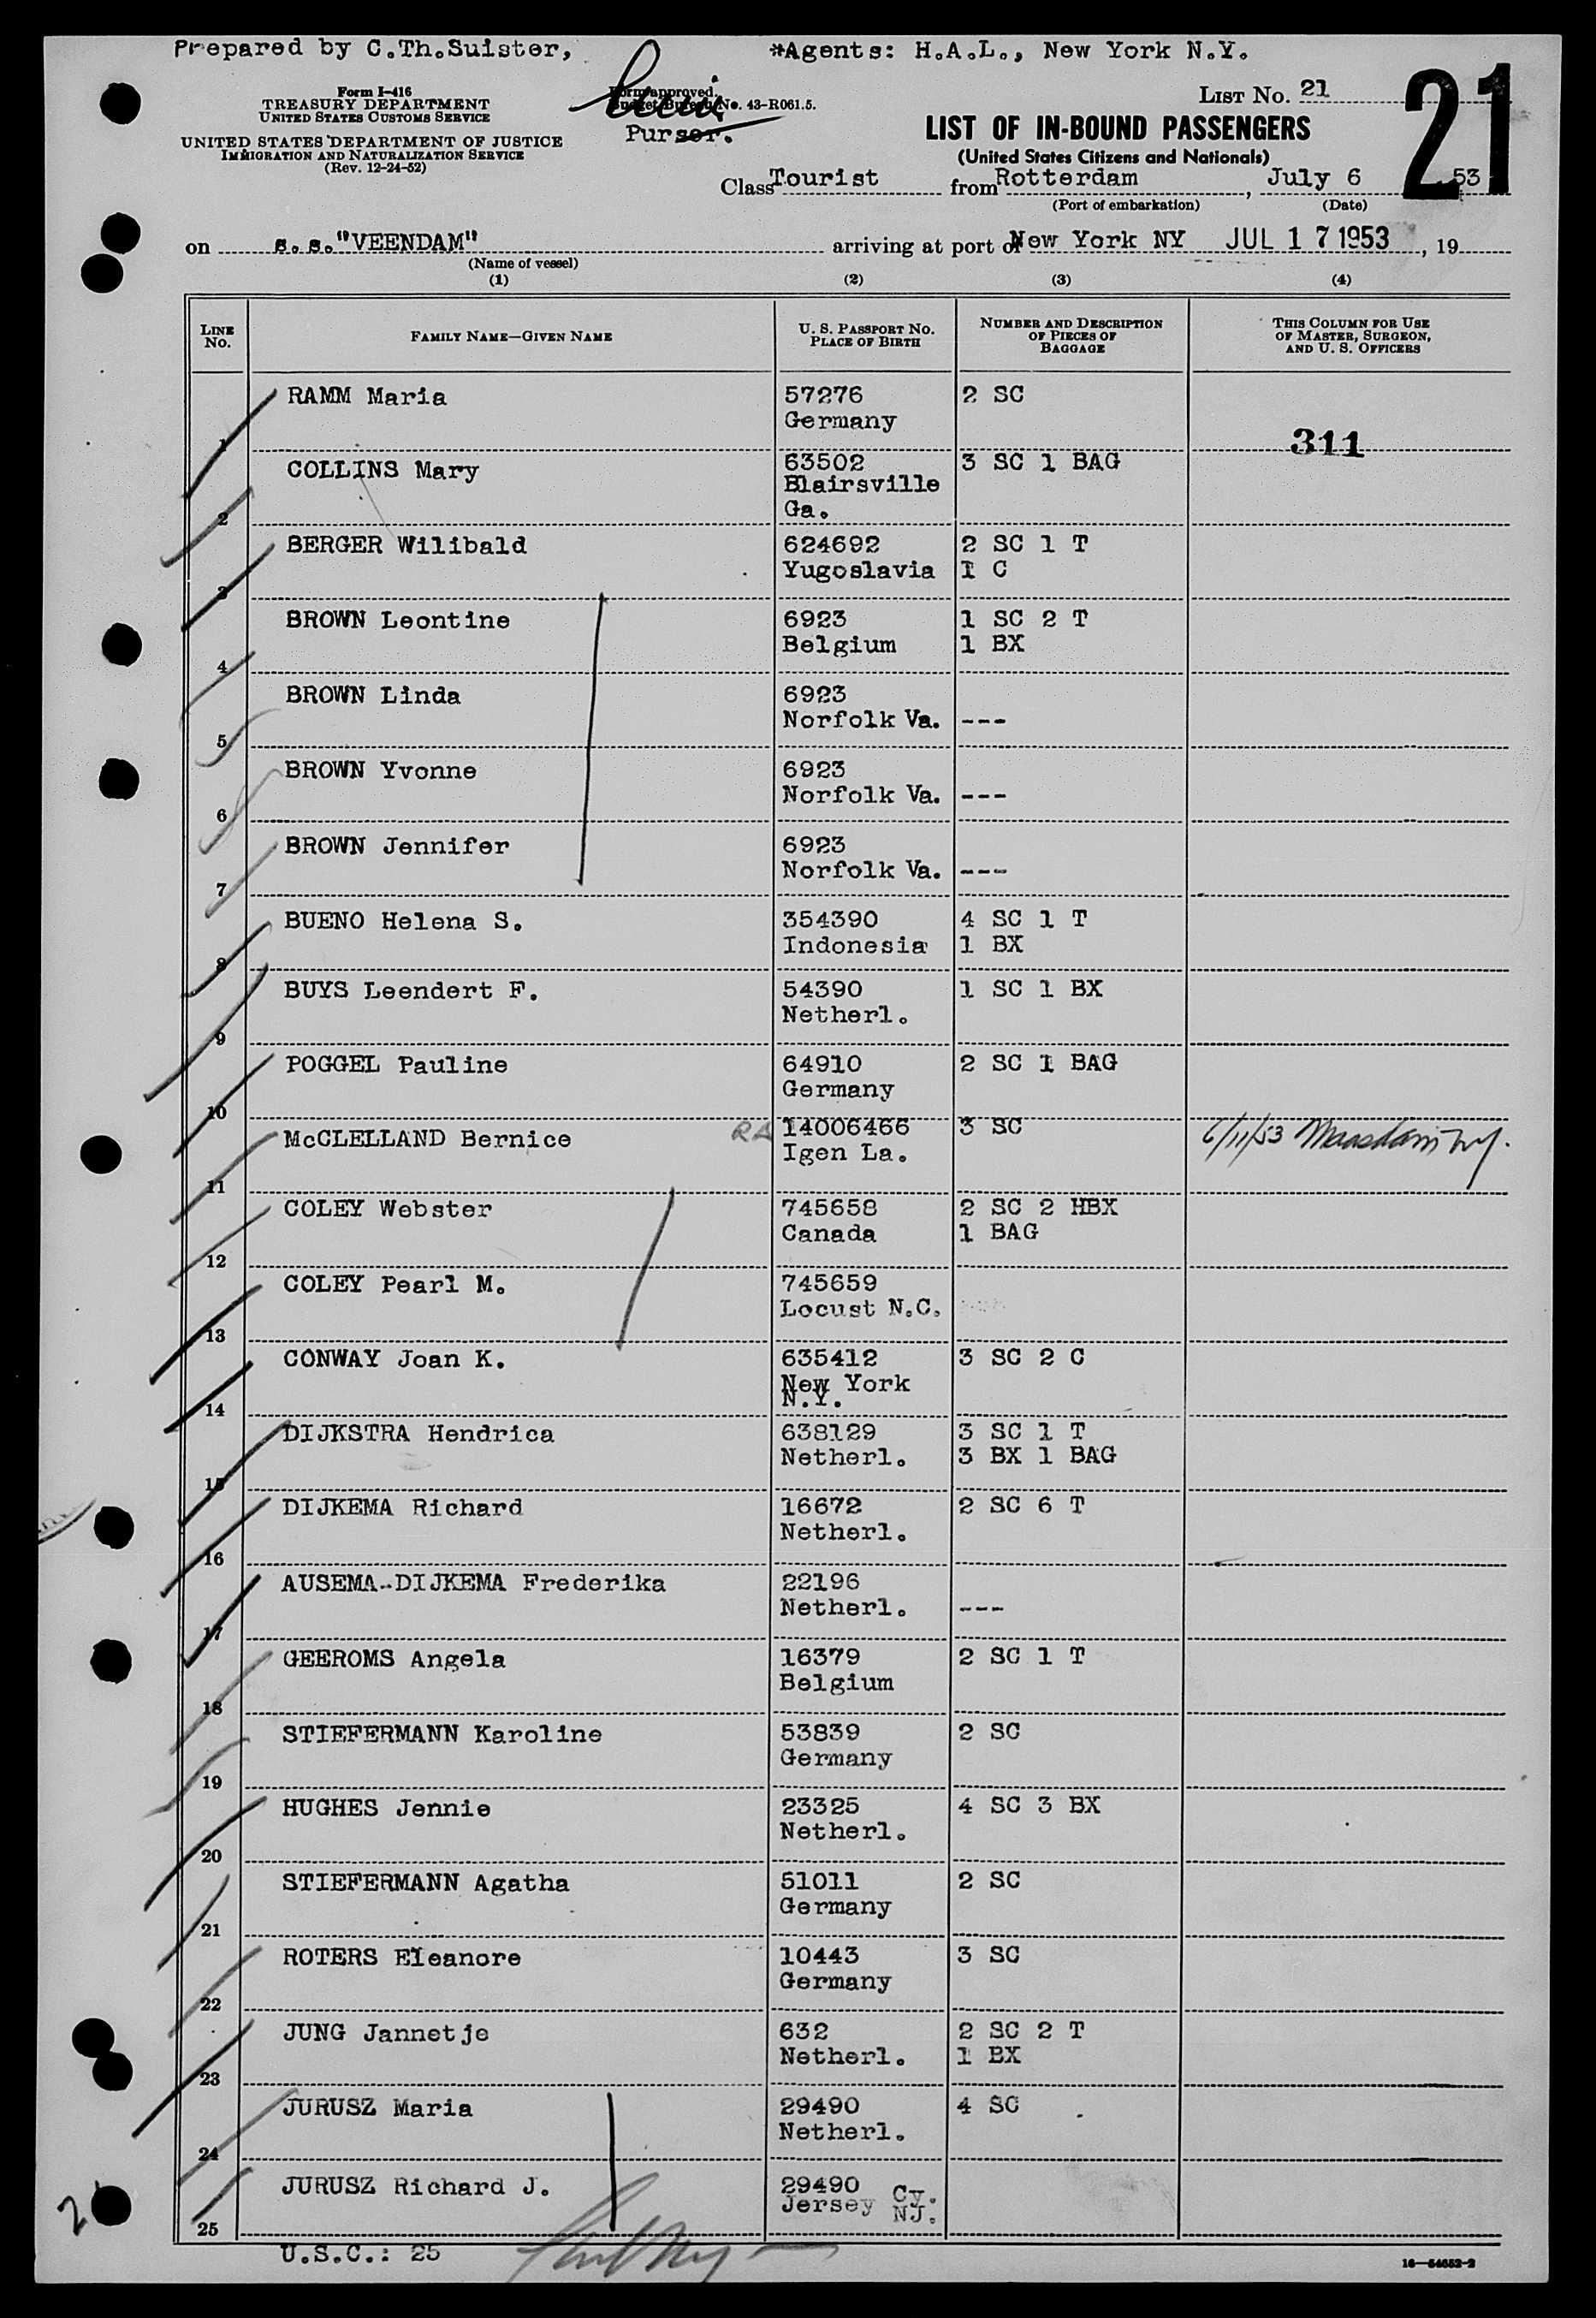 Prepared by C.Th.Suister,
*Agents: H.A.L., New York N.Y.
Form I-416
TREASURY DEPARTMENT
UNITED STATES CUSTOMS SERVICE
UNITED STATES DEPARTMENT OF JUSTICE
IMMIGRATION AND NATURALIZATION SERVICE
(Rev. 12-24-52)
Form approved.
Budget Bureau No. 43-R061.5.
Purser.
LIST NO. 21
21
LIST OF IN-BOUND PASSENGERS
(United States Citizens and Nationals)
Class Tourist from Rotterdam, July 6 53
(Port of embarkation) (Date)
on s.s."VEENDAM" arriving at port of New York NY JUL 17 1953, 19
(Name of vessel)
(1) (2) (3) (4)
LINE NO. FAMILY NAME—GIVEN NAME U. S. PASSPORT NO. PLACE OF BIRTH NUMBER AND DESCRIPTION OF PIECES OF BAGGAGE THIS COLUMN FOR USE OF MASTER, SURGEON, AND U. S. OFFICERS
RAMM Maria 57276 2 SC
Germany
1 311
COLLINS Mary 63502 3 SC 1 BAG
Blairsville
2 Ga.
BERGER Wilibald 624692 2 SC 1 T
Yugoslavia 1 C
3
BROWN Leontine 6923 1 SC 2 T
Belgium 1 BX
4
BROWN Linda 6923
Norfolk Va. ---
5
BROWN Yvonne 6923
Norfolk Va. ---
6
BROWN Jennifer 6923
Norfolk Va. ---
7
BUENO Helena S. 354390 4 SC 1 T
Indonesia 1 BX
8
BUYS Leendert F. 54390 1 SC 1 BX
Netherl.
9
POGGEL Pauline 64910 2 SC 1 BAG
Germany
10
McCLELLAND Bernice RA 14006466 3 SC 6/11/53 Maasdam NY.
Igen La.
11
COLEY Webster 745658 2 SC 2 HBX
Canada 1 BAG
12
COLEY Pearl M. 745659
Locust N.C.
13
CONWAY Joan K. 635412 3 SC 2 C
New York
N.Y.
14
DIJKSTRA Hendrica 638129 3 SC 1 T
Netherl. 3 BX 1 BAG
15
DIJKEMA Richard 16672 2 SC 6 T
Netherl.
16
AUSEMA-DIJKEMA Frederika 22196
Netherl. ---
17
GEEROMS Angela 16379 2 SC 1 T
Belgium
18
STIEFERMANN Karoline 53839 2 SC
Germany
19
HUGHES Jennie 23325 4 SC 3 BX
Netherl.
20
STIEFERMANN Agatha 51011 2 SC
Germany
21
ROTERS Eleanore 10443 3 SC
Germany
22
JUNG Jannetje 632 2 SC 2 T
Netherl. 1 BX
23
JURUSZ Maria 29490 4 SC
Netherl.
24
JURUSZ Richard J. 29490
Jersey Cy. NJ.
25
2
U.S.C.: 25
16—54652-2